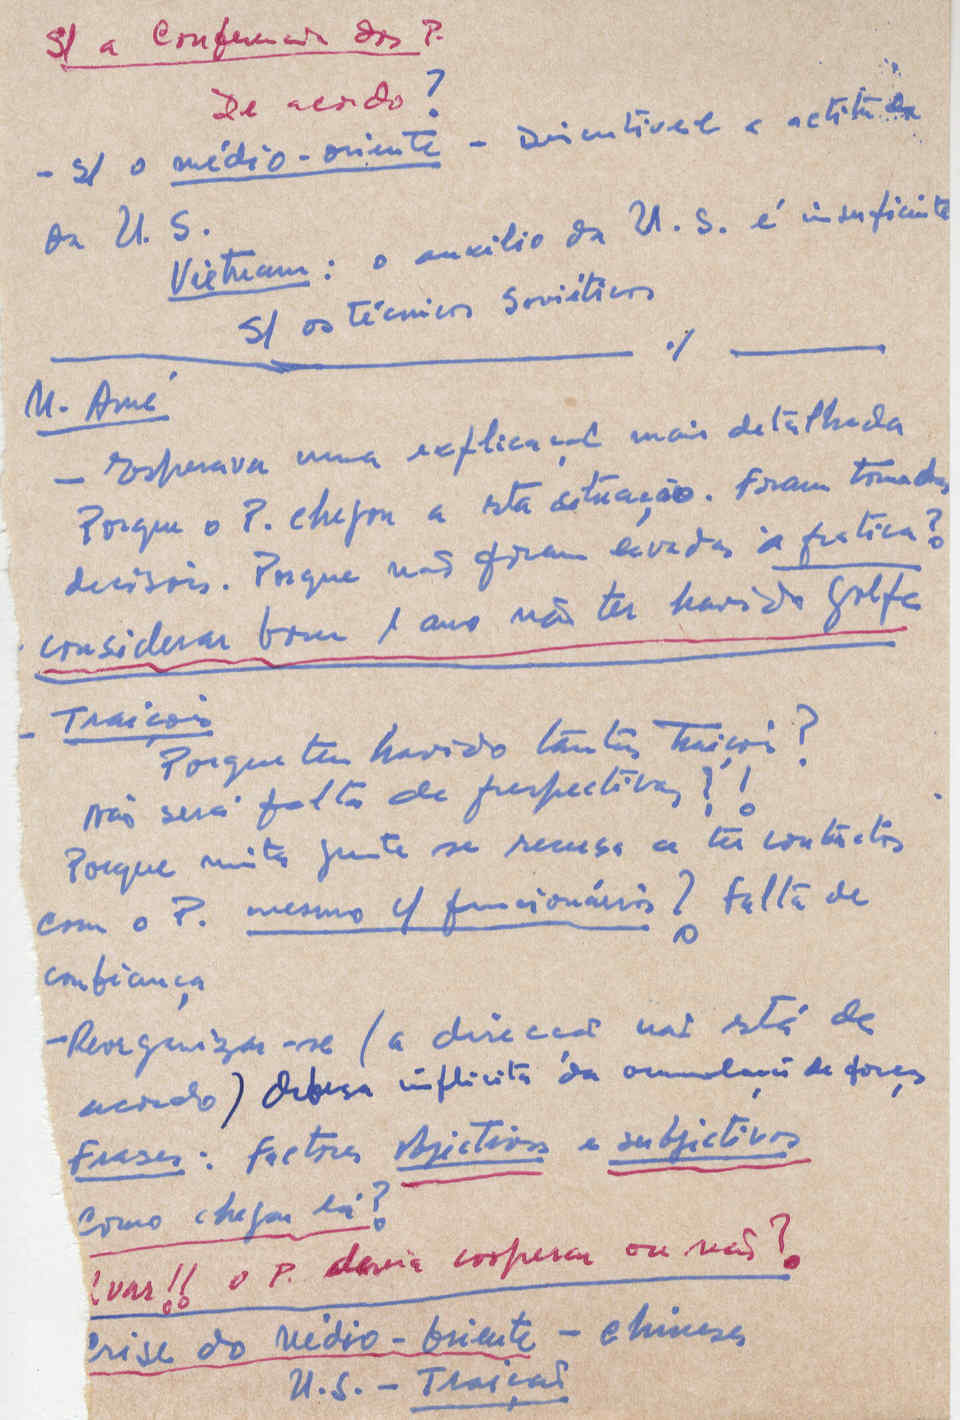 S/ a Conferencia dos P.
De acordo?
- S/ o médio-oriente - Discutivel a actitude
da U. S.
Vietnam: o auxilio da U. S. é insuficiente
S/ os técnicos Soviéticos
./
U. Amé
- Esperava uma explicação mais detalhada
Porque o P. chegou a esta situação. Foram tomadas
decisõis. Porque não foram levadas à pratica?
considerar bom 1 ano não ter havido golpes
- Traiçõis
Porque tem havido tantas Traiçois?
Não será falta de perspectivas?!
Porque muita gente se recusa a ter contactos
com o P. mesmo c/ funcionários? Falta de
confiança
- Reorganizar-se (a direcção não está de
acordo) defesa implicita da acumulação de forças
Frases: Factores objectivos e subjectivos
Como chegar lá?
o P. devia cooperar ou não?
Crise do Médio-Oriente - chineses
U.S. - Traição